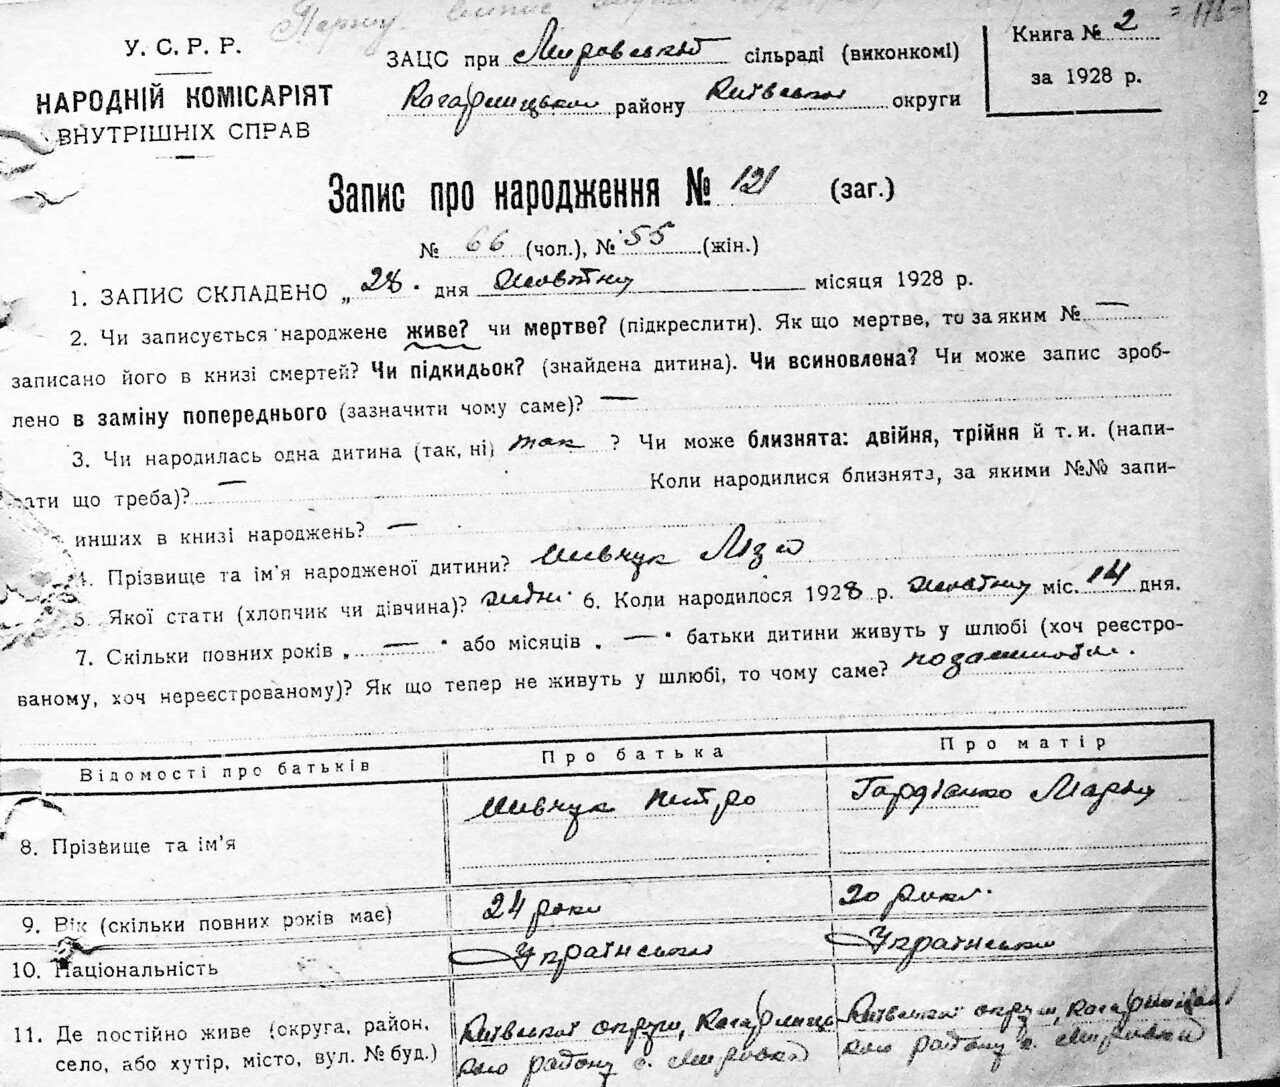 У. С. Р. Р.
НАРОДНІЙ КОМІСАРІЯТ
ВНУТРІШНІХ СПРАВ
ЗАЦС при Мировський сільраді (виконкомі)
Кагарлицького району Київської округи
Книга № 2
за 1928 р.
2
Запис про народження № 121 (заг.)
№ 66 (чол.), № 55 (жін.)
1. ЗАПИС СКЛАДЕНО „28" дня жовтня місяця 1928 р.
2. Чи записується народжене живе? чи мертве? (підкреслити). Як що мертве, то за яким № —
записано його в книзі смертей? Чи підкидьок? (знайдена дитина). Чи всиновлена? Чи може запис зроб-
лено в заміну попереднього (зазначити чому саме)? —
3. Чи народилась одна дитина (так, ні) так ? Чи може близнята: двійня, трійня й т. и. (напи-
сати що треба)? — Коли народилися близнята, за якими №№ запи-
инших в книзі народжень? —
4. Прізвище та ім'я народженої дитини? Шевчук Ліза
5. Якої стати (хлопчик чи дівчина)? 6. Коли народилося 1928 р. жовтня міс. 14 дня.
7. Скільки повних років „ — " або місяців „ — " батьки дитини живуть у шлюбі (хоч реєстро-
ваному, хоч нереєстрованому)? Як що тепер не живуть у шлюбі, то чому саме?
Відомості про батьків Про батька Про матір
8. Прізвище та ім'я Шевчук Петро Гордієнко Марія
9. Вік (скільки повних років має) 24 роки 20 років
10. Національність Українська Українська
11. Де постійно живе (округа, район, Київської округи, Кагарлицького Київської округи, Кагарлицького
село, або хутір, місто, вул. № буд.) району с. Мировка району с. Мировка